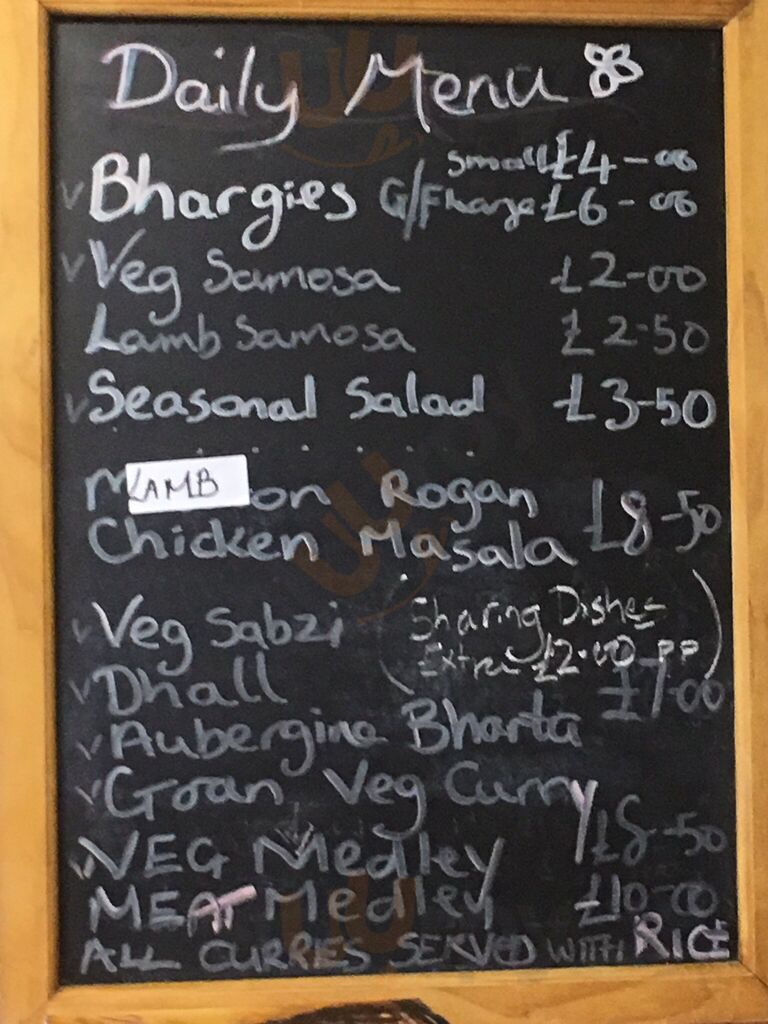 Daily Menu
v Bhargies G/F small £4-00
large £6-00
v Veg Samosa £2-00
Lamb Samosa £2-50
v Seasonal Salad £3-50
LAMB Rogan
Chicken Masala £8-50
v Veg Sabzi (Sharing Dishes
Extra £2.00 PP)
v Dhall £7.00
v Aubergine Bharta
v Goan Veg Curry
v VEG Medley £8-50
MEAT Medley £10-00
ALL CURRES SERVED WITH RICE